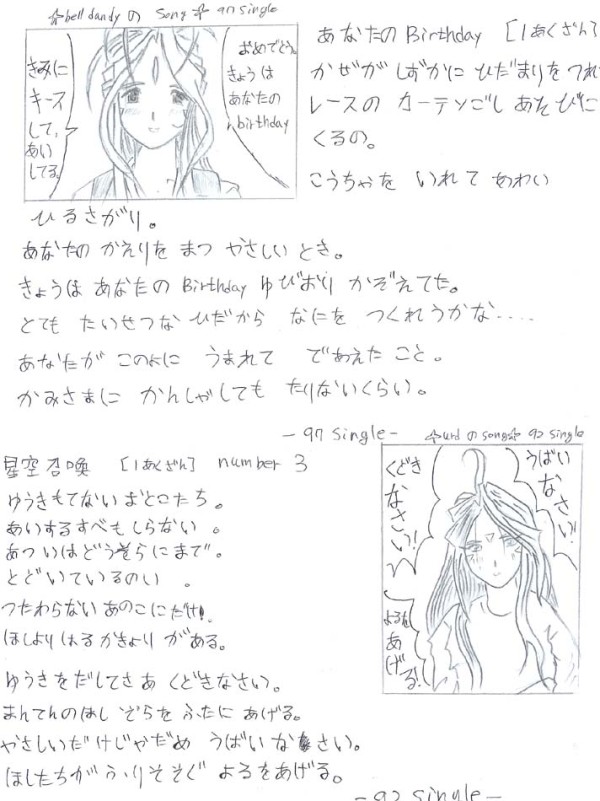 ☆bell dandy の Song ☆ 97 single
おめでとう。
きょうは
あなたの
birthday
きみに
キース
して、
あい
してる。
あなたの Birthday [1あくざん]
かぜが しずかに ひだまりを つれ
レースの カーテンごし あそびに
くるの。
こうちゃを いれて あわい
ひるさがり。
あなたの かえりを まつ やさしい とき。
きょうは あなたの Birthday ゆびおり かぞえてた。
とても たいせつな ひだから なにを つくれうかな....
あなたが このよに うまれて であえた こと。
かみさまに かんしゃしても たりないくらい。
-97 single-
☆urd のsong☆ 92 single
うばい
なさい!
くどき
なさい!
よるを
あげる!
星空召喚 [1あくざん] number 3
ゆうきもてない おとこたち。
あいするすべも しらない 。
あつ いはどう そらにまで。
とどいているのい 。
つたわらない あのこにだけ!
ほしより はるかきょり がある。
ゆうきをだしてさあ くどきなさい。
まんてんのほし ぞらを ふたに あげる。
やさしいだけじゃだめ うばい なさい。
ほしたちが ふりそそぐ よるをあげる。
-92 single-